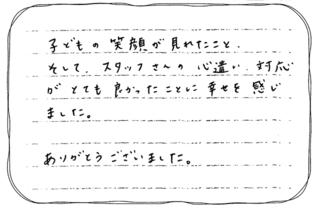 子どもの笑顔が見れたこと、
そして、スタッフさんの心遣い、対応
がとても良かったことに幸せを感じ
ました。
ありがとうございました。